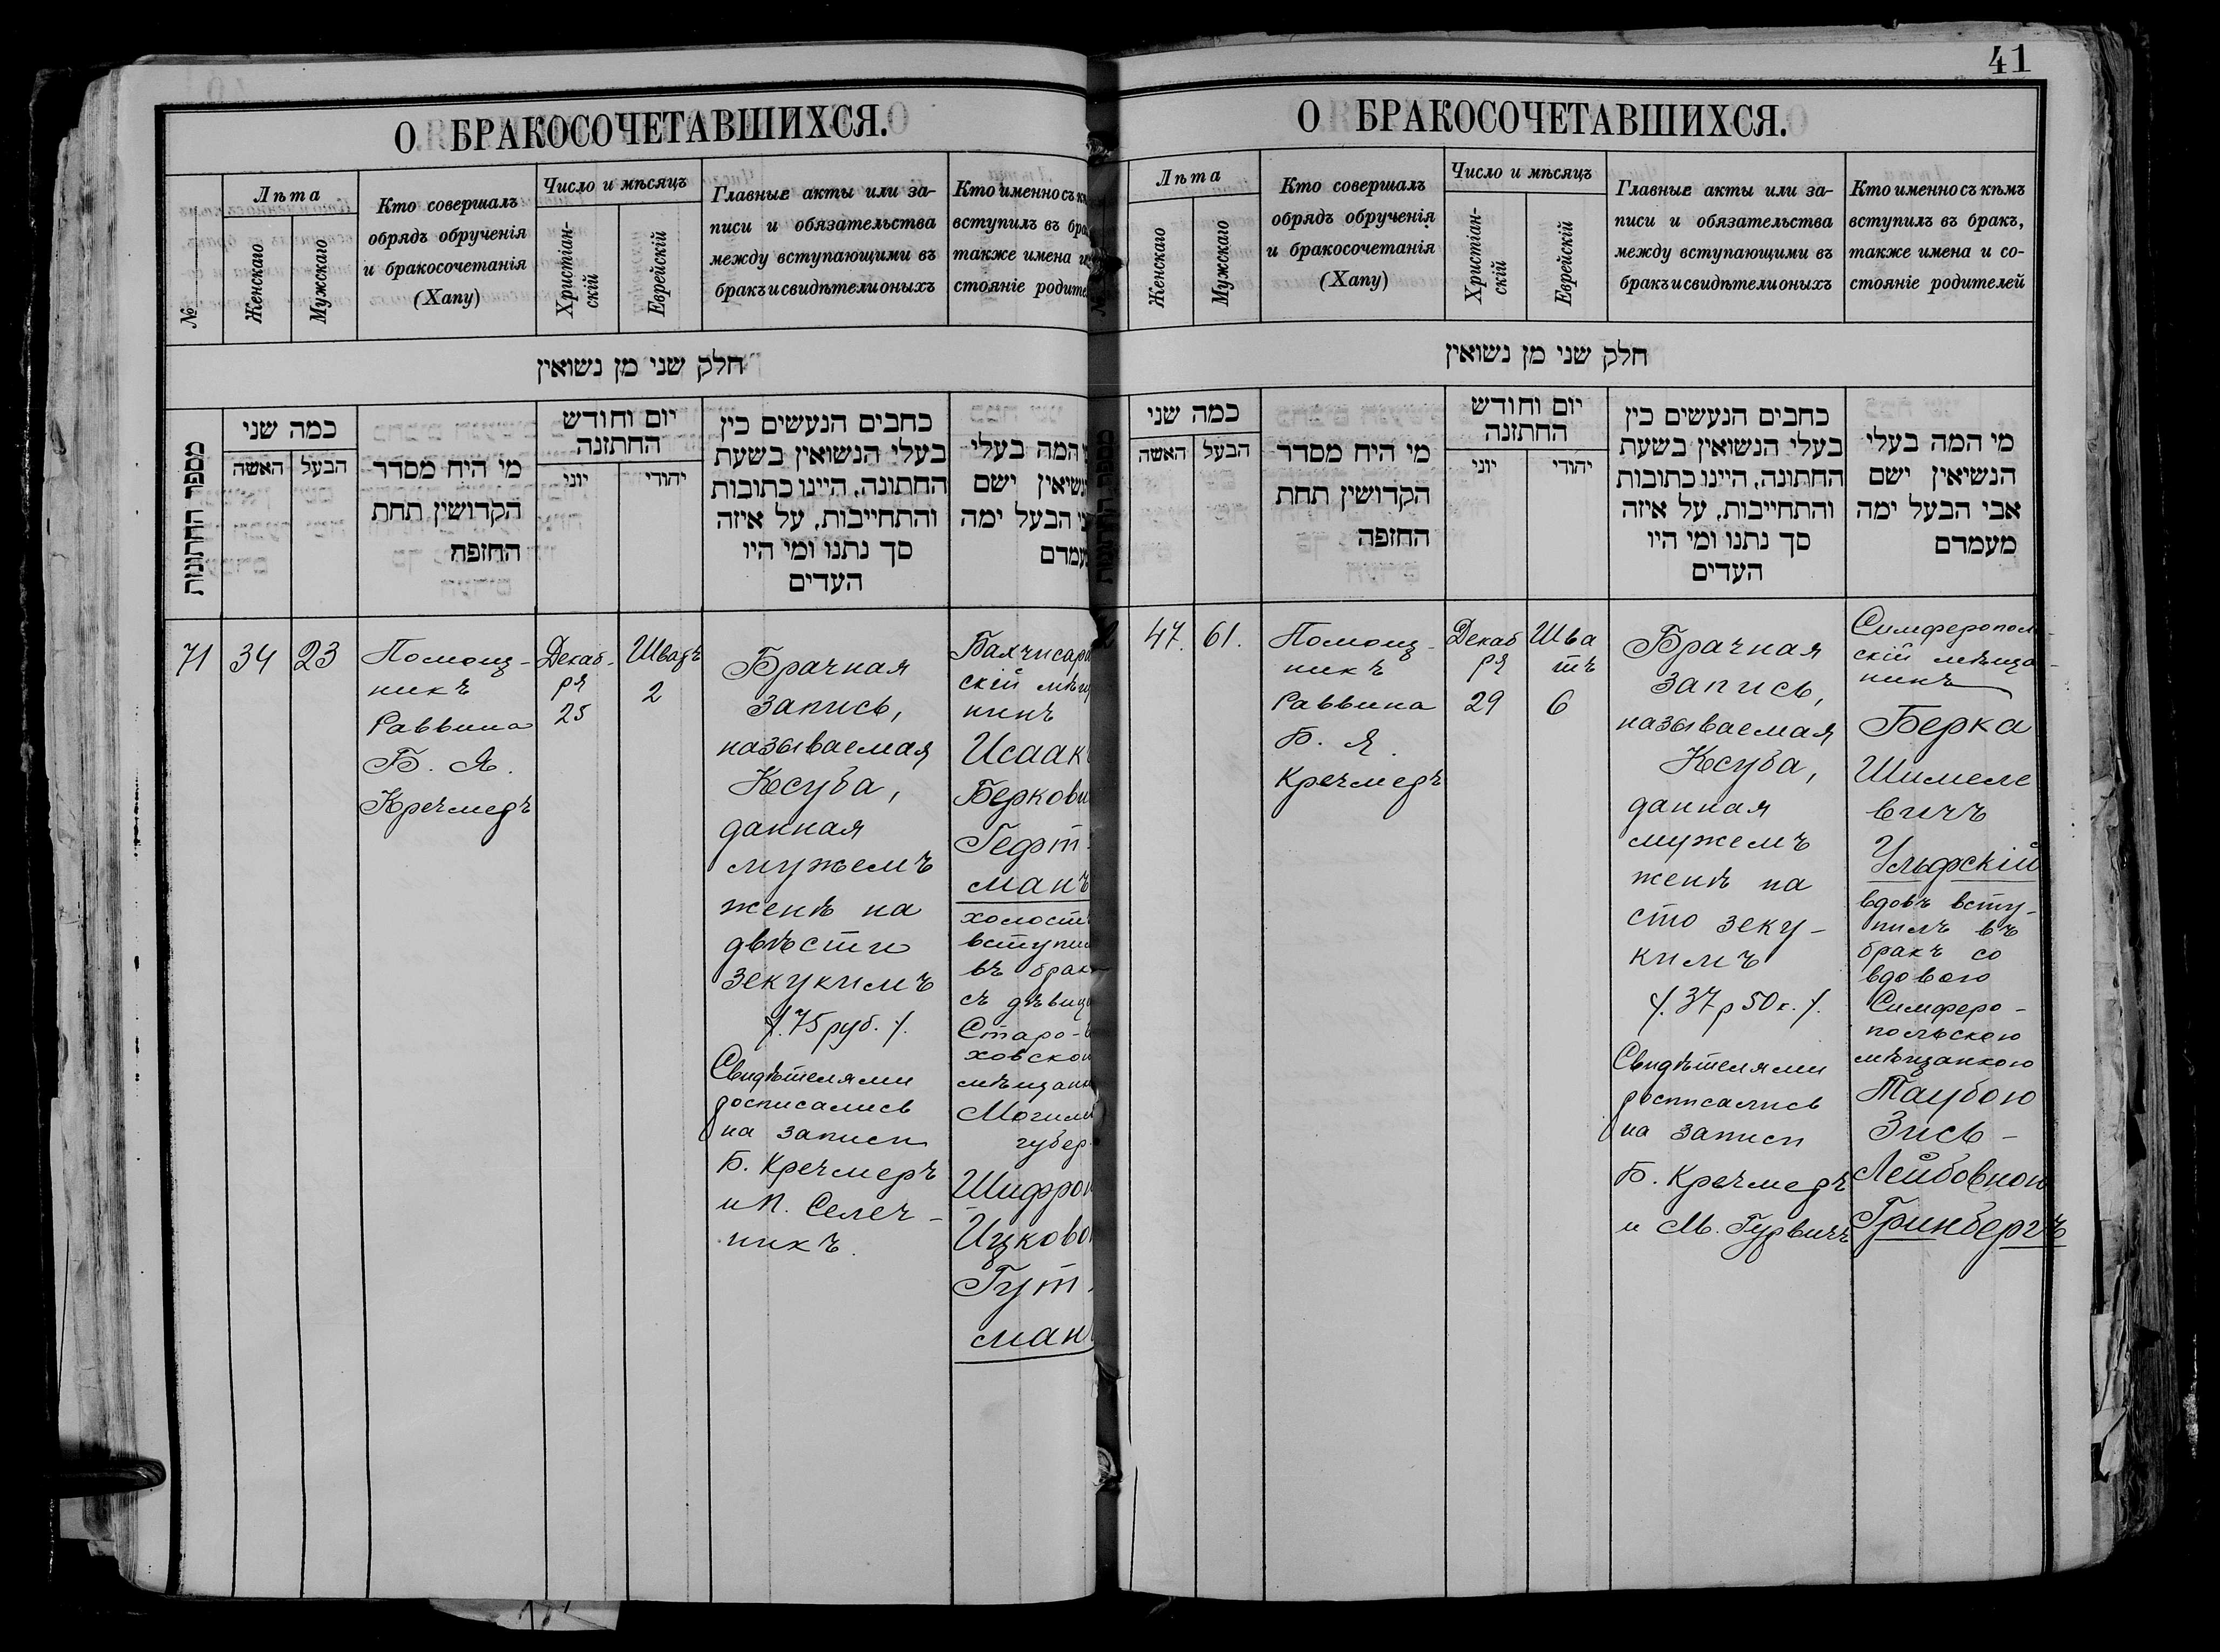 41
О БРАКОСОЧЕТАВШИХСЯ.
№
Лѣта
Женскаго
Мужскаго
Кто совершалъ
обрядъ обрученія
и бракосочетанія
(Хапу)
Число и мѣсяцъ
Христіан-
скій
Еврейскій
Главные акты или за-
писи и обязательства
между вступающими въ
бракъ и свидѣтели оныхъ
Кто именно съ к
вступилъ въ бра
также имена и
стояніе родите
חלק שני מן נשואין
מספר החתונות
כמה שני
האשה
הבעל
מי היח מסדר
הקדושין תחת
החזפח
יום וחודש
החתזנה
יוני
יהודי
כחבים הנעשים כין
בעלי הנשואין בשעת
החתונה, היינו כתובות
והתחייבות, על איזה
סך נתנו ומי היו
העדים
המה בעלי
נשיאין ישם
הבעל ימה
מעמדם
71
34
23
Помощ-
никъ
Раввина
Б. Я.
Кречмеръ
Декаб-
ря
25
Шватъ
2
Брачная
запись,
называемая
Ксуба,
данная
мужемъ
женѣ на
двѣсти
зекукимъ
/. 75 руб. /.
Свидѣтелями
росписались
на записи
Б. Кречмеръ
и П. Селеч-
никъ.
Бахчисара
скій мѣщ
нинъ
Исаакъ
Беркови
Гефт-
манъ
холостъ
вступил
въ бракъ
съ дѣвице
Старо-
ховской
мѣщанк
Могилев
губер
Шифрой
Ицково
Гут-
ман
О БРАКОСОЧЕТАВШИХСЯ.
Лѣта
Женскаго
Мужскаго
Кто совершалъ
обрядъ обрученія
и бракосочетанія
(Хапу)
Число и мѣсяцъ
Христіан-
скій
Еврейскій
Главные акты или за-
писи и обязательства
между вступающими въ
бракъ и свидѣтели оныхъ
Кто именно съ кѣмъ
вступилъ въ бракъ,
также имена и со-
стояніе родителей
חלק שני מן נשואין
מספר החתונות
כמה שני
האשה
הבעל
מי היח מסדר
הקדושין תחת
החזפה
יום וחודש
החתזנה
יוני
יהודי
כחבים הנעשים כין
בעלי הנשואין בשעת
החתונה, היינו כתובות
והתחייבות, על איזה
סך נתנו ומי היו
העדים
מי המה בעלי
הנשיאין ישם
אבי הבעל ימה
מעמדם
2
47.
61.
Помощ-
никъ
Раввина
Б. Я.
Кречмеръ
Декаб
ря
29
Шва
тъ
6
Брачная
запись,
называемая
Ксуба,
данная
мужемъ
женѣ на
сто зеку-
кимъ
/. 37 р 50 к. /.
Свидѣтелями
росписались
на записи
Б. Кречмеръ
и М. Гурвичъ
Симферополь-
скій мѣща-
нинъ
Берка
Шимеле
вичъ
Ульфскій
вдовъ всту-
пилъ въ
бракъ со
вдовою
Симферо-
польскою
мѣщанкою
Таубою
Зись-
Лейбовною
Гринбергъ